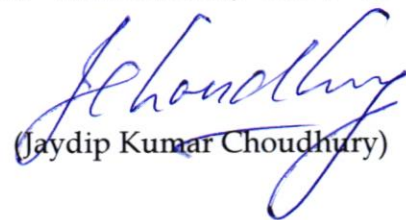 JChoudhury
(Jaydip Kumar Choudhury)